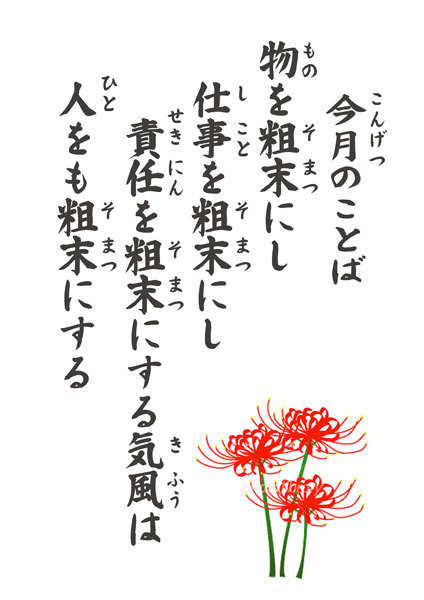 今月のことば
物を粗末にし
仕事を粗末にし
責任を粗末にする気風は
人をも粗末にする